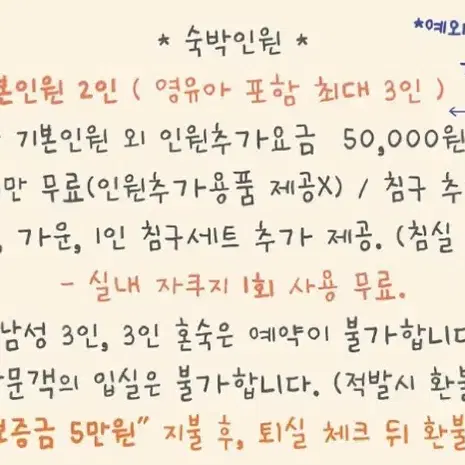 * 숙박인원 *
*예외
본인원 2인 ( 영유아 포함 최대 3인 )
기본인원 외 인원추가요금 50,000원
만 무료(인원추가용품 제공X) / 침구 추
, 가운, 1인 침구세트 추가 제공. (침실
- 실내 자쿠지 1회 사용 무료.
남성 3인, 3인 혼숙은 예약이 불가합니다
방문객의 입실은 불가합니다. (적발시 환불
보증금 5만원" 지불 후, 퇴실 체크 뒤 환불